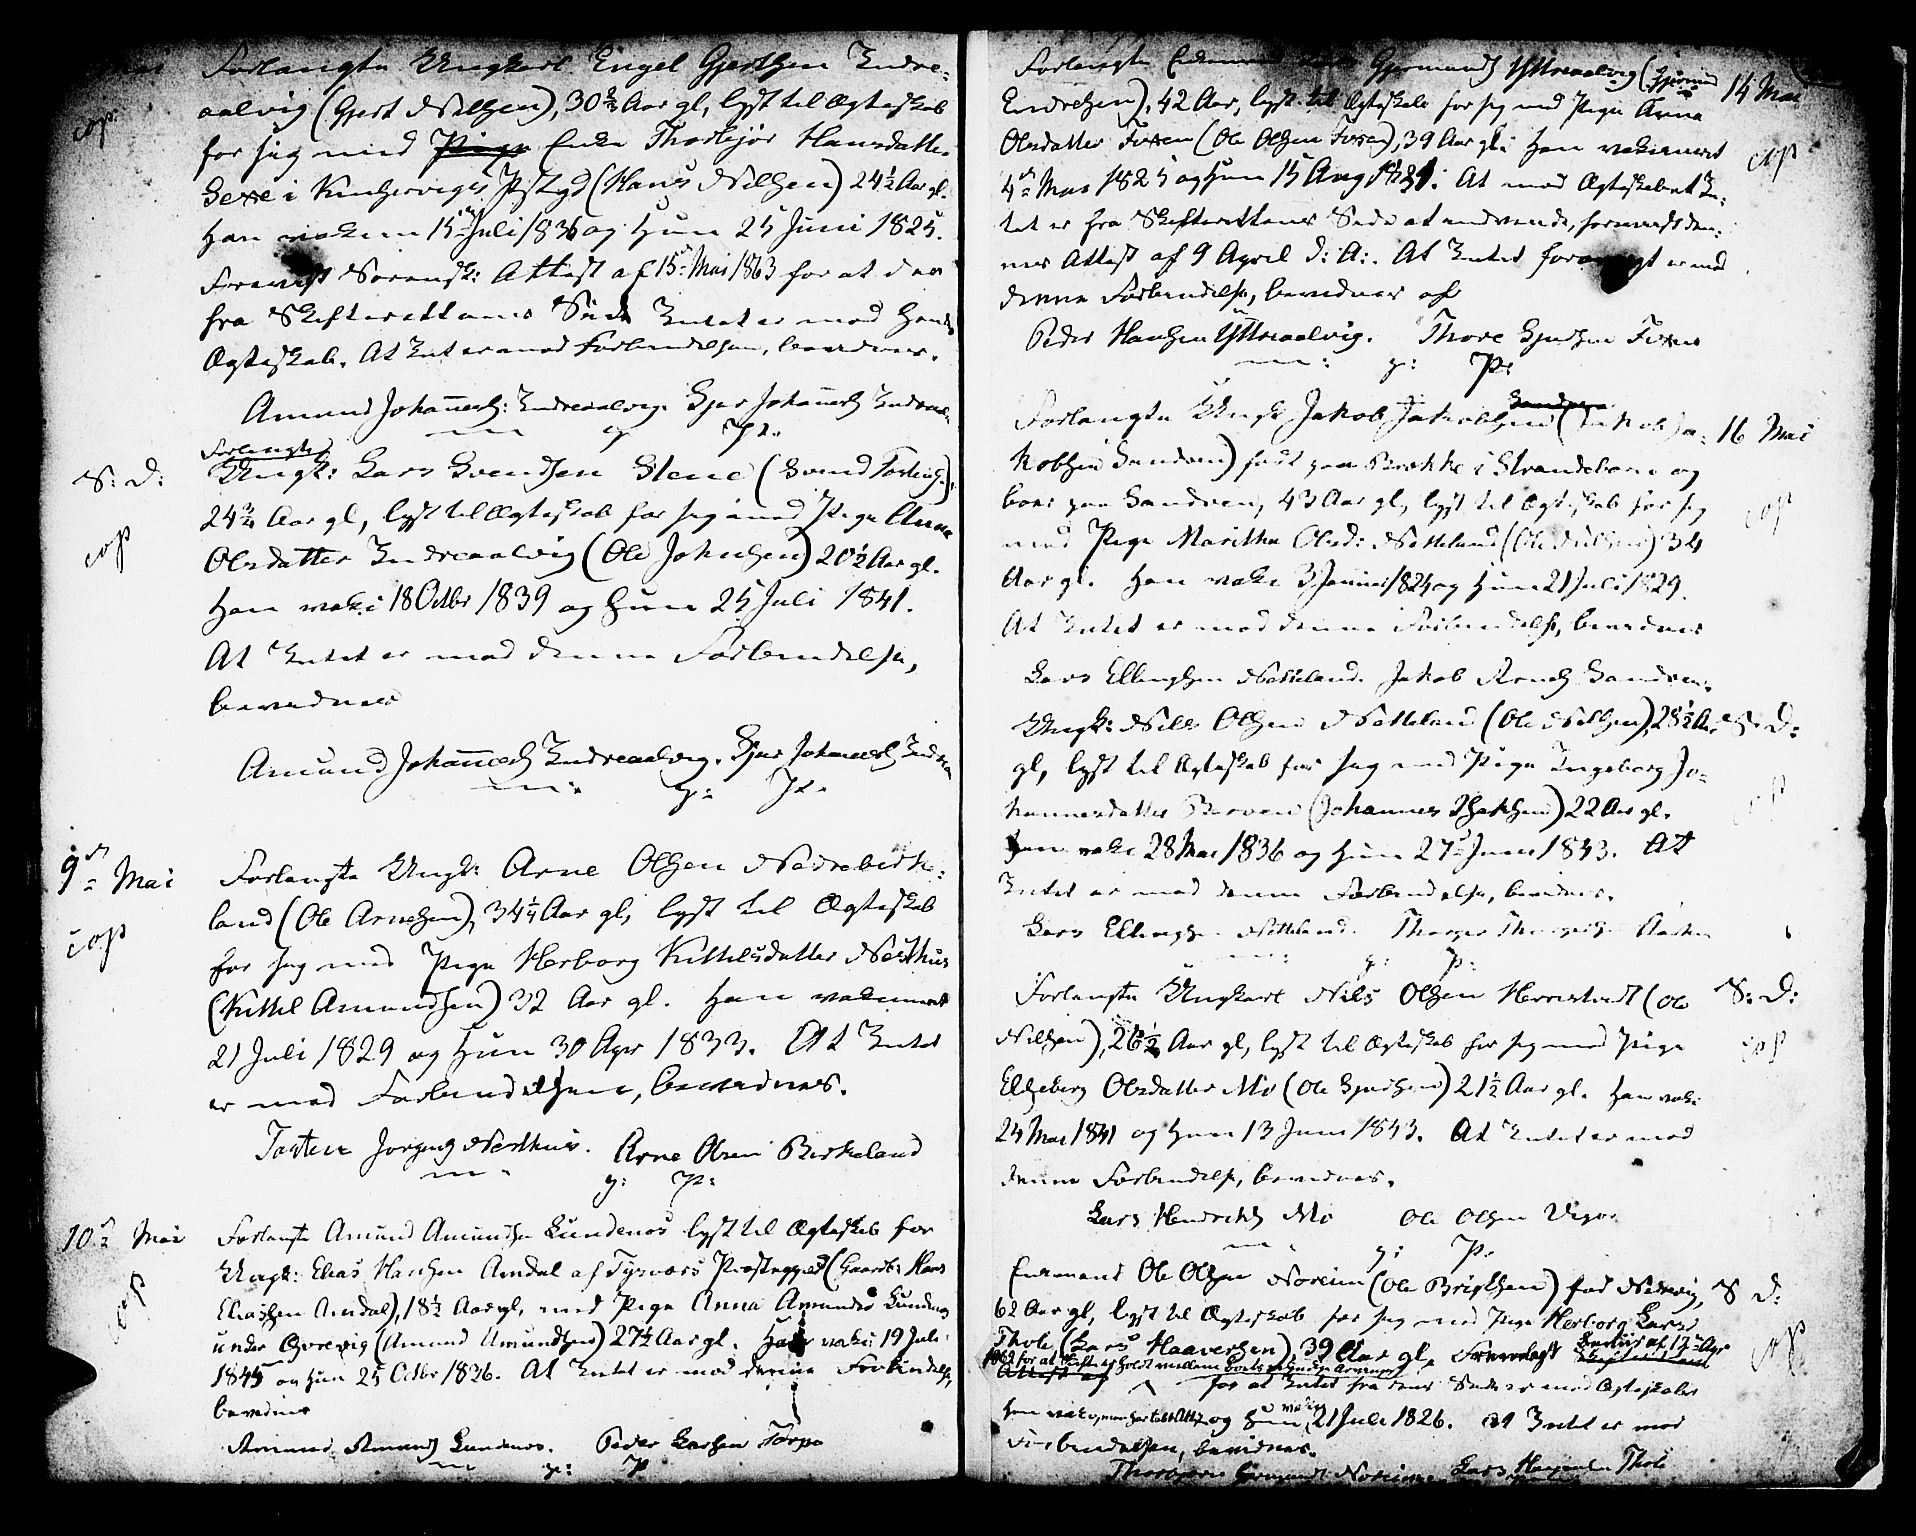 Mai Forlangte Ungkarl Engel Gjertsen Indre-
cop. aalvig (Gjert Nilsen), 30 3/4 Aar gl, lyst til Ægteskab
for sig med Pige Enke Thorbjør Hansdatter
Sexe i Kinserviges Pstgd (Hans Nilsen) 24 1/2 Aar gl.
Han vakcin 15 Juli 1836 og Hun 25 Juni 1825.
Forevist Sorensk: Attest af 15 Mai 1863 for at der
fra Skifterettens Side Intet er mod hendes
Ægteskab. At Intet er mod Forbindelsen, bevidner.
Amund Johannes: Indreaalvig. Sjur Johannes Indreaal
m g P.
Forlangte
S: D: Ungk: Lars Svendsen Stene (Svend Torkels),
24 3/4 Aar gl, lyst til Ægteskab for sig med Pige Anna
cop Olsdatter Indreaalvig (Ole Johnsen) 20 1/2 Aar gl.
Han vak: 18 Octbr 1839 og Hun 25 Juli 1841.
At Intet er mod denne Forbindelse,
bevidner
Amund Johannes Indreaalvig. Sjur Johannes Indrea
m: g: P.
9 Mai Forlangte Ungk: Arne Olsen Nedrebirke-
land (Ole Arnesen), 34 1/4 Aar gl, lyst til Ægteskab
cop for sig med Pige Herborg Kittelsdatter Nesthus
(Kittel Amundsen) 32 Aar gl. Han vakcineret
21 Juli 1829 og Hun 30 Apr 1833. At Intet
er mod Forbindelsen, bevidner.
Tosten Jorgens Nesthus. Arne Olsen Birkeland
m g: P:
10 Mai Forlangte Amund Amundsen Lundenos lyst til Ægteskab for
Ungk: Elias Hansen Amdal af Tysværs Præstegjeld (Gaardb: Hans
cop Eliassen Amdal), 18 1/2 Aar gl, med Pige Anna Amunds Lundenos
under Øvrevig (Amund Amundsen) 27 1/2 Aar gl. Han vak: 19 Juli
1845 og Hun 25 Octbr 1836. At Intet er mod denne Forbindelse,
bevidner
Amund Amunds Lundenos. Peder Larsen Torpe
m g: P
Forlangte Enkemand Gjermunds Ytreaalvig (Gjermund 14 Mai
Endresen), 42 Aar, lyst til Ægteskab for sig med Pige Anna
Olsdatter Fosen (Ole Olsen Fosen), 39 Aar gl: Han vakcineret cop
4 Mai 1825 og Hun 15 Aug 1831. At mod Ægteskabet In-
tet er fra Skifterettens Side at indvende, forevist den-
nes Attest af 9 April d: A:. At Intet forøvrigt er mod
denne Forbindelse, bevidner af
Peder Hansen Ytreaalvig. Thore Sjursen Fosen
m: g: P:
Sandven
Forlangte Ungk Jakob Jakobsen (Jakob Ja- 16 Mai
kobsen Sandven) født paa Brekke i Strandebarm og
boer paa Sandven, 43 Aar gl, lyst til Ægteskab for sig cop
med Pige Maritha Olsd: Netteland (Ole Nilsen) 34
Aar gl. Han vak: 3 Januar 1824 og Hun 21 Juli 1829.
At Intet er mod denne Forbindelse, bevidner
Lars Ellingsen Netteland. Jakob Arnes Sandven.
Ungk: Nils Olsen Netteland (Ole Nilsen), 28 1/2 Aar S: D:
gl, lyst til Ægteskab for sig med Pige Ingeborg Jo-
hannesdatter Berven (Johannes Isaksen) 22 Aar gl. cop
Han vak: 28 Mai 1836 og Hun 27 Juni 1843. At
Intet er mod denne Forbindelse, bevidner.
Lars Ellingsen Netteland.
m: g: P:
Forlangte Ungkarl Nils Olsen Herrestvedt (Ole S: D:
Nilsen), 26 1/2 Aar gl, lyst til Ægteskab for sig med Pige cop
Elseberg Olsdatter Mo (Ole Sjursen) 21 1/2 Aar gl. Han vak:
24 Mai 1841 og Hun 13 Juni 1843. At Intet er mod
denne Forbindelse, bevidner.
Lars Hendriks Mo Ole Olsen
m g: P.
Enkemand Ole Olsen Noreim (Ole Brigtsen) fød S D:
62 Aar gl, lyst til Ægteskab for sig med Pige Herborg Lars
Tholo (Lars Haaversen), 39 Aar gl, Forevist af 17 Apr cop
1863 for at Skifte er holdt mellem
Attest af for at Intet fra dens Side er mod Ægteskabet
Han vak: og Hun vak: 21 Juli 1826. At Intet er mod
Forbindelsen, bevidner.
Thorbjørn Noreim Lars Tholo